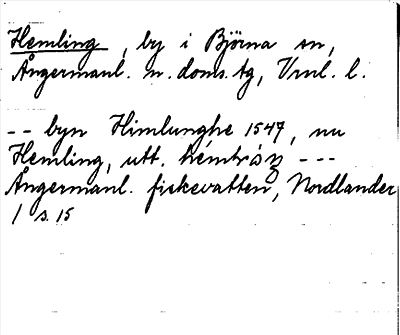 Hemling, by i Björna sn,
Ångermanl. n. doms. tg, Vnl. l.
-- byn Himlunghe 1547, nu
Hemling, utt. hémbrıŋ ---
Ångermanl. fiskevatten, Nordlander
1 s. 15